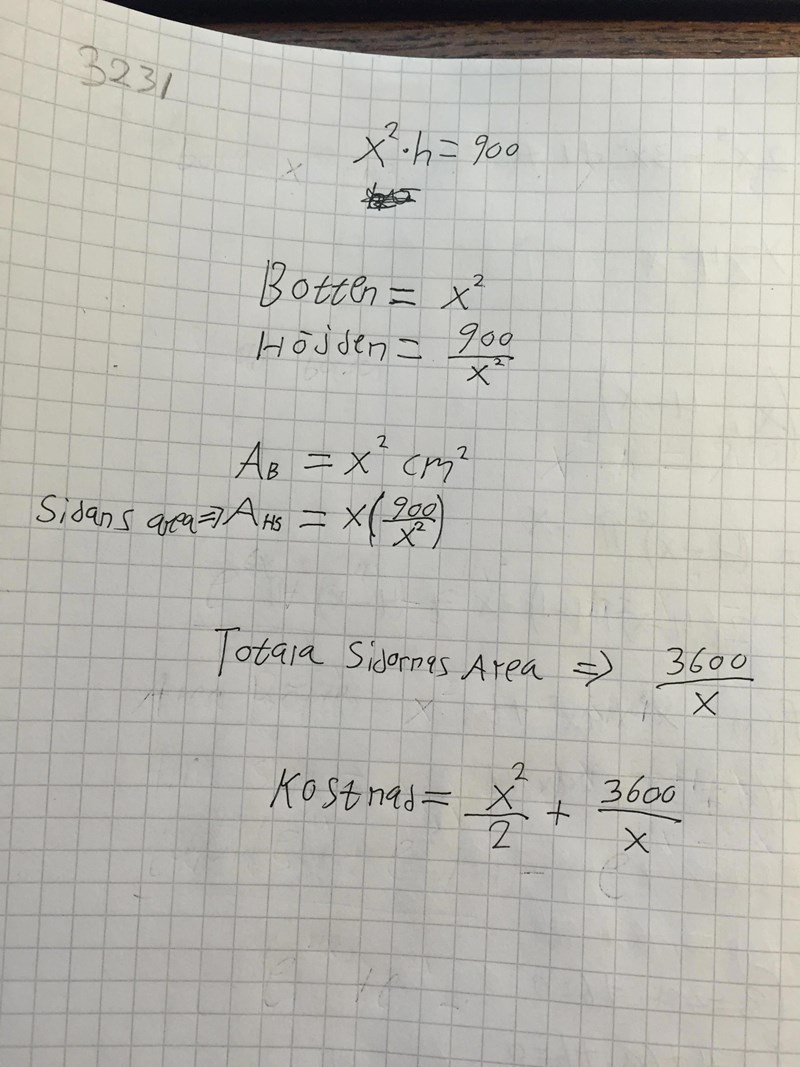 3231
x²·h = 900
Botten = x²
Höjden = 900/x²
A_B = x² cm²
Sidans area ⇒ A_HS = x(900/x²)
Totala Sidornas Area ⇒ 3600/x
Kostnad = x²/2 + 3600/x